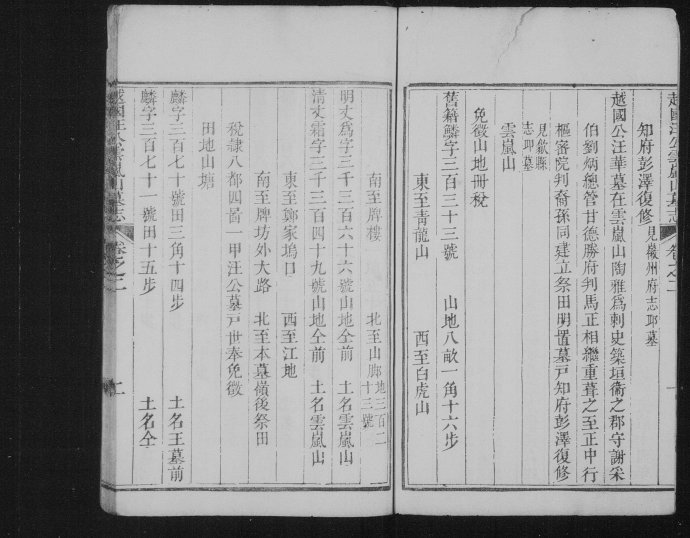 越國汪公雲嵐山墓志 卷之二 一
知府彭澤復修 見徽州府志邱墓
越國公汪華墓在雲嵐山陶雅爲刺史築垣衞之郡守謝采
伯劉炳總管甘德勝府判馬正相繼重葺之至正中行
樞密院判裔孫同建立祭田明置墓戸知府彭澤復修
見歙縣志邱墓
雲嵐山
免徵山地冊稅
舊籍鱗字三百三十三號 山地八畝一角十六步
東至靑龍山 西至白虎山
南至牌樓 北至山腳地三百二十三號
明丈爲字三千三百六十六號山地仝前 土名雲嵐山
清丈霜字三千三百四十九號山地仝前 土名雲嵐山
東至鄭家塢口 西至江地
南至牌坊外大路 北至本墓嶺後祭田
稅隷八都四啚一甲汪公墓戸世奉免徵
田地山塘
麟字三百七十號田三角十四步 土名王墓前
麟字三百七十一號田十五步 土名仝
越國汪公雲嵐山墓志 卷之二 二